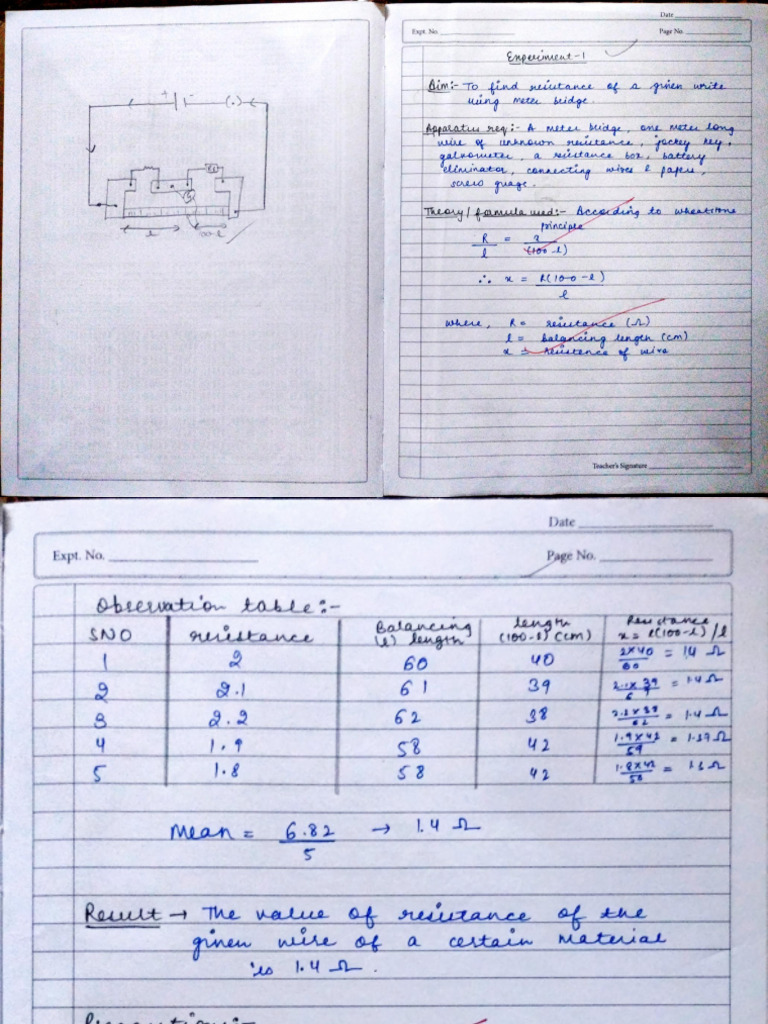 Date
Expt. No.
Page No.
Experiment-1
Aim:- To find resistance of a given write
using meter bridge.
Apparatus req:- A meter bridge, one meter long
wire of unknown resistance, jockey key,
galvometer, a resistance box, battery
eliminator, connecting wires & papers,
screw guage.
Theory/formula used:- According to wheatstone
principle
R/l = x/(100-l)
∴ x = R(100-l)/l
where, R = resistance (Ω)
l = balancing lengen (cm)
x = resistance of wire
Teacher's Signature
+ -
(.)
G
l
100-l
Date
Expt. No.
Page No.
Observation table:-
SNO resistance Balancing (l) length length (100-l) (cm) Resistance x = r(100-l)/l
1 2 60 40 2x40/60 = 1.4 Ω
2 2.1 61 39 2.1x39/61 = 1.4 Ω
3 2.2 62 38 2.2x38/62 = 1.4 Ω
4 1.9 58 42 1.9x42/59 = 1.37 Ω
5 1.8 58 42 1.8x42/58 = 1.3 Ω
Mean = 6.82/5 → 1.4 Ω
Result → The value of resistance of the
given wire of a certain material
is 1.4 Ω.